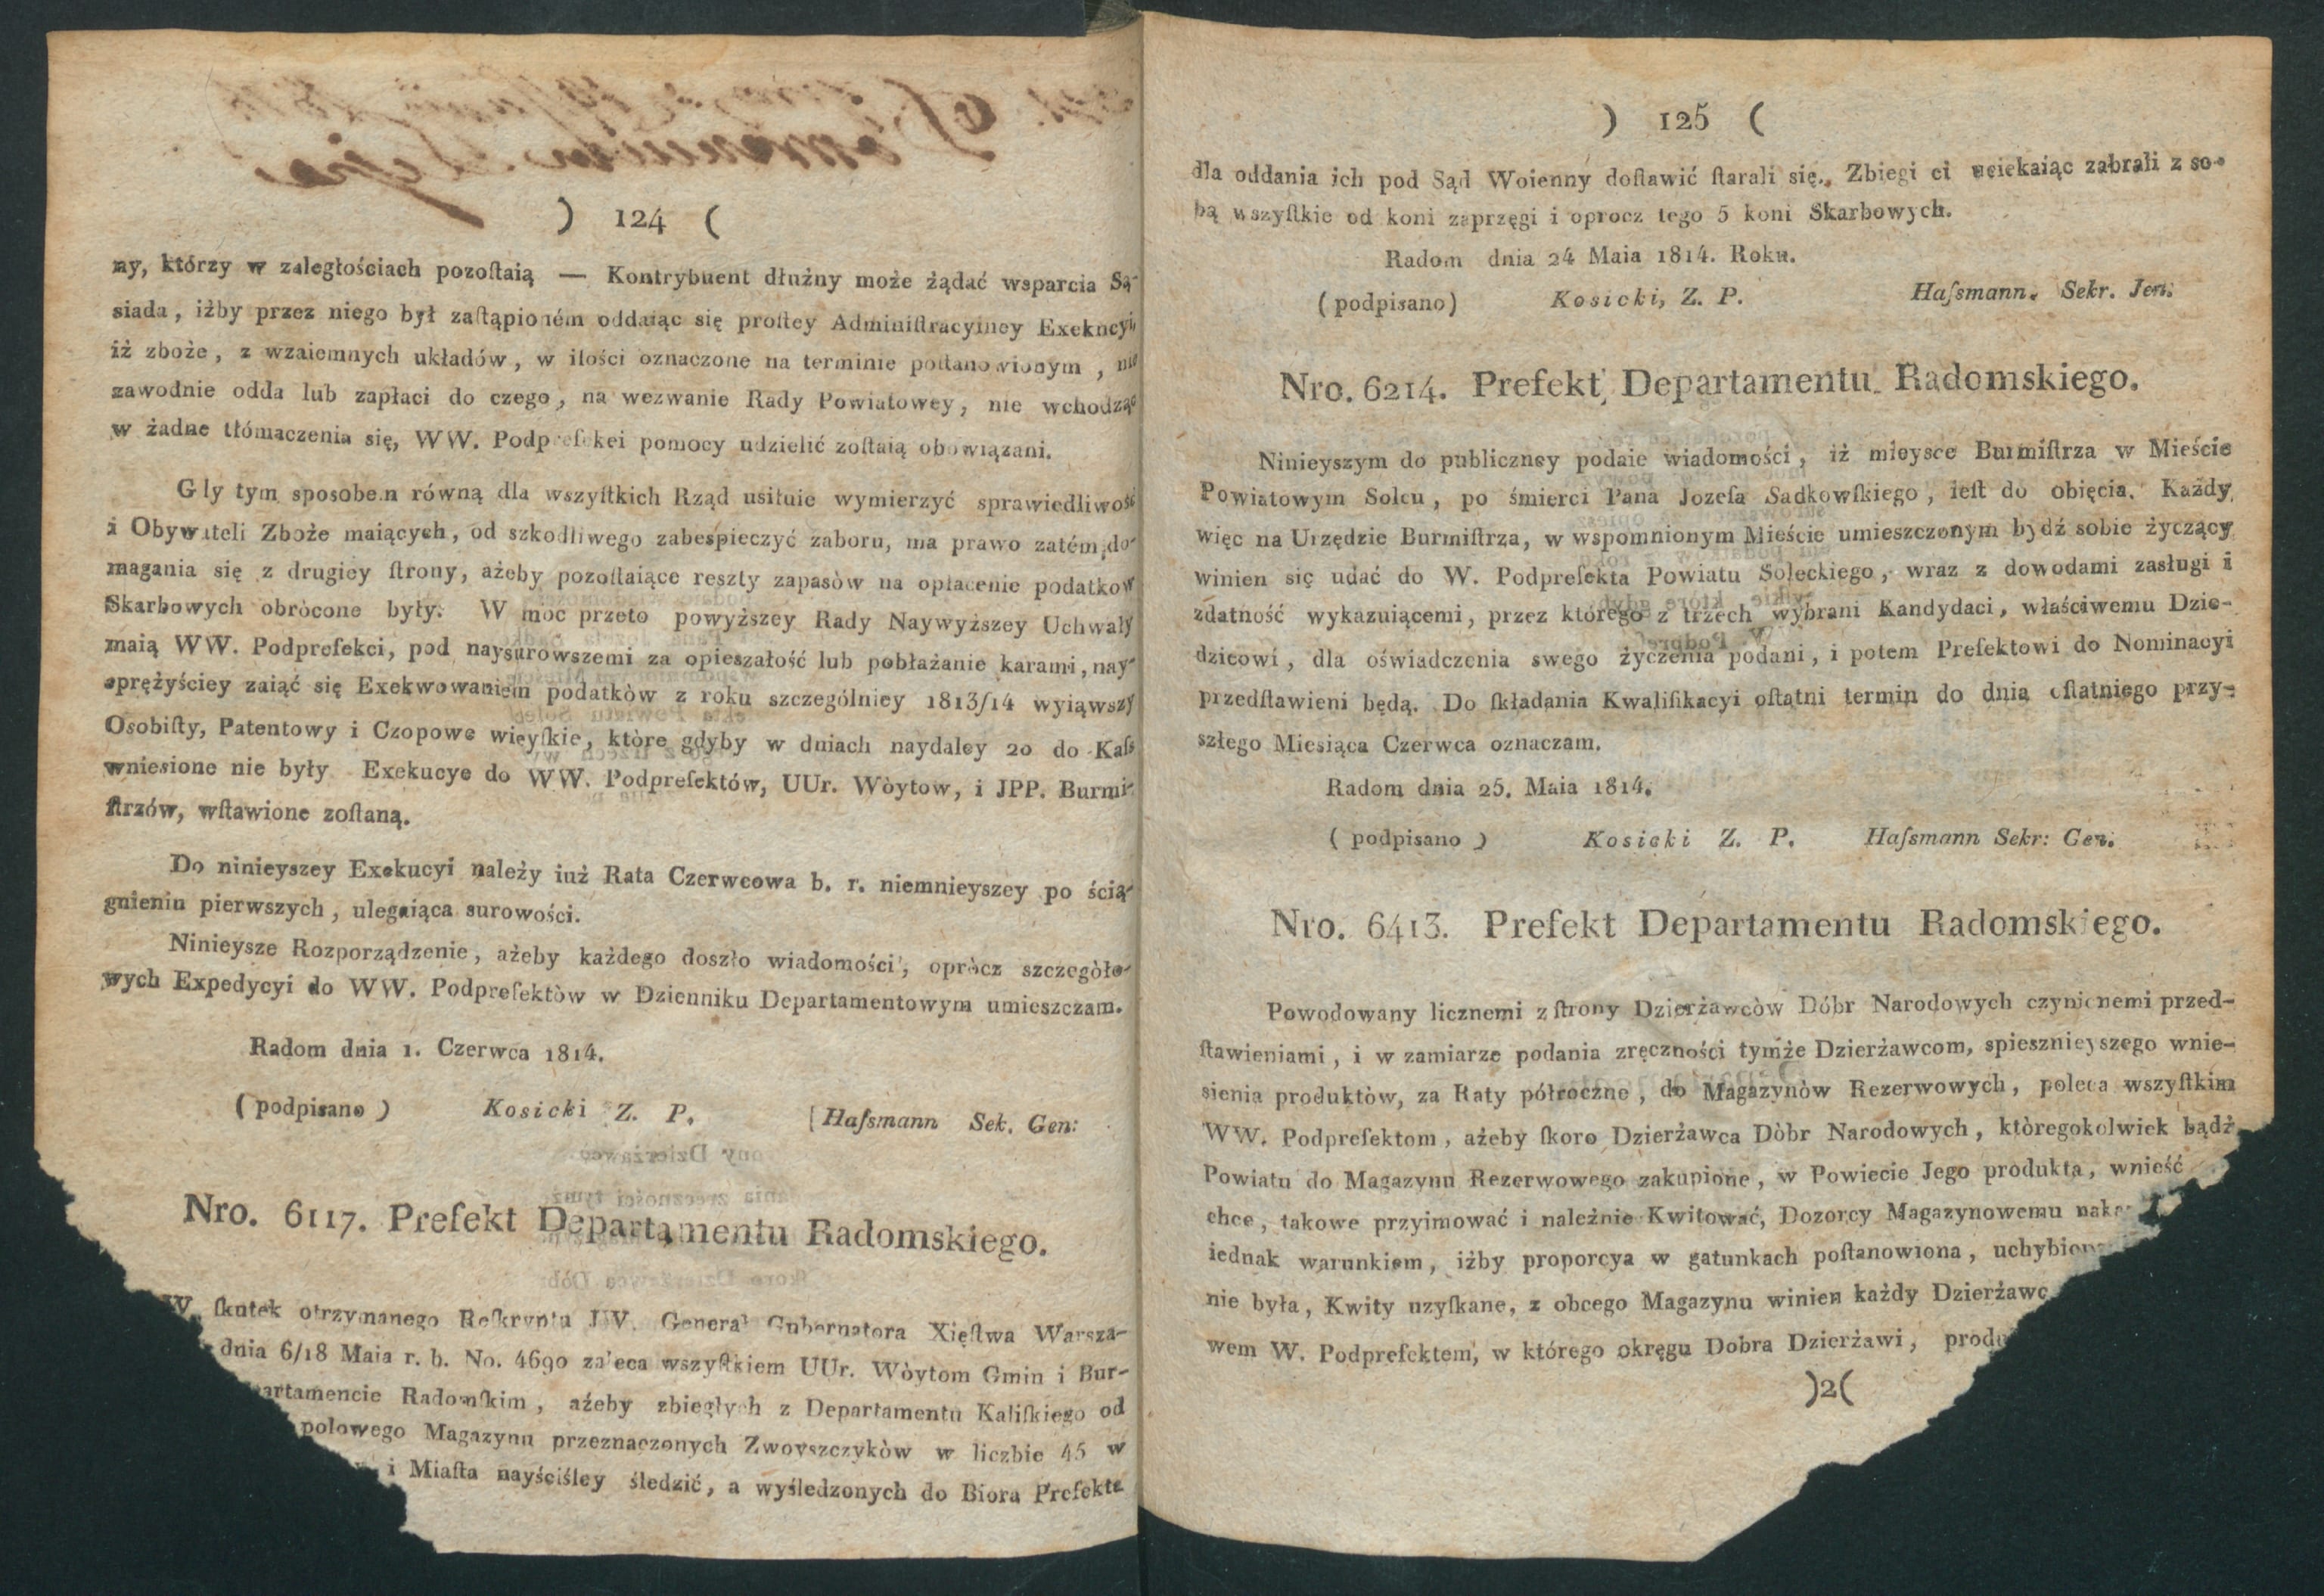 ) 124 (
ny, którzy w zaległościach pozoſtaią — Kontrybuent dłużny może żądać wsparcia Są-
siada, iżby przez niego był zaſtąpioném oddaiąc się proſtey Adminiſtracyiney Exekucyi,
iż zboże, z wzaiemnych układów, w ilości oznaczone na terminie poſtanowionym, nie
zawodnie odda lub zapłaci do czego, na wezwanie Rady Powiatowey, nie wchodząc
w żadne tłómaczenia się, WW. Podprefekci pomocy udzielić zoſtaią obowiązani.
Gdy tym sposobem równą dla wszyſtkich Rząd usiłuie wymierzyć sprawiedliwość
i Obywateli Zboże maiących, od szkodliwego zabespieczyć zaboru, ma prawo zatém do-
magania się z drugiey ſtrony, ażeby pozoſtaiące reszty zapasòw na opłacenie podatkow
Skarbowych obròcone były. W moc przeto powyższey Rady Naywyższey Uchwały
maią WW. Podprefekci, pod naysurowszemi za opieszałość lub pobłażanie karami, nay-
sprężyściey zaiąć się Exekwowaniem podatkòw z roku szczególniey 1813/14 wyiąwszy
Osobiſty, Patentowy i Czopowe wieyſkie, ktòre gdyby w dniach naydaley 20 do Kaſs
wniesione nie były Exekucye do WW. Podprefektów, UUr. Wòytow, i JPP. Burmi-
ſtrzów, wſtawione zoſtaną.
Do ninieyszey Exekucyi należy iuż Rata Czerwcowa b. r. niemnieyszey po ścią-
gnieniu pierwszych, ulegaiąca surowości.
Ninieysze Rozporządzenie, ażeby każdego doszło wiadomości, opròcz szczegòło-
wych Expedycyi do WW. Podprefektòw w Dzienniku Departamentowym umieszczam.
Radom dnia 1. Czerwca 1814.
(podpisano) Kosicki Z. P. Haſsmann Sek. Gen:
Nro. 6117. Prefekt Departamentu Radomskiego.
W ſkutek otrzymanego Reſkryptu JW. General Gubernatora Xięſtwa Warsza-
dnia 6/18 Maia r. b. No. 4690 zaleca wszyſtkiem UUr. Wòytom Gmin i Bur-
artamencie Radomſkim, ażeby zbiegłych z Departamentu Kaliſkiego od
polowego Magazynu przeznaczonych Zwoyszczykòw w liczbie 45 w
i Miaſta nayściśley śledzić, a wyśledzonych do Biora Prefekta
) 125 (
dla oddania ich pod Sąd Woienny doſtawić ſtarali się. Zbiegi ci uciekaiąc zabrali z so-
bą wszyſtkie od koni zaprzęgi i oprocz tego 5 koni Skarbowych.
Radom dnia 24 Maia 1814. Roku.
(podpisano) Kosicki, Z. P. Haſsmann. Sekr. Jen:
Nro. 6214. Prefekt Departamentu Radomskiego.
Ninieyszym do publiczney podaie wiadomości, iż mieysce Burmiſtrza w Mieście
Powiatowym Solcu, po śmierci Pana Jozefa Sadkowſkiego, ieſt do obięcia. Każdy
więc na Urzędzie Burmiſtrza, w wspomnionym Mieście umieszczonym bydź sobie życzący
winien się udać do W. Podprefekta Powiatu Soleckiego, wraz z dowodami zasługi i
zdatność wykazuiącemi, przez którego z trzech wybrani Kandydaci, właściwemu Dzie-
dzicowi, dla oświadczenia swego życzenia podani, i potem Prefektowi do Nominacyi
przedſtawieni będą. Do ſkładania Kwalifikacyi oſtatni termin do dnia oſtatniego przy-
szłego Miesiąca Czerwca oznaczam.
Radom dnia 25. Maia 1814.
(podpisano) Kosicki Z. P. Haſsmann Sekr: Gen.
Nro. 6413. Prefekt Departamentu Radomskiego.
Powodowany licznemi z ſtrony Dzierżawcòw Dóbr Narodowych czynionemi przed-
ſtawieniami, i w zamiarze podania zręczności tymże Dzierżawcom, spiesznieyszego wnie-
sienia produktòw, za Raty półroczne, do Magazynòw Rezerwowych, poleca wszyſtkim
WW. Podprefektom, ażeby ſkoro Dzierżawca Dòbr Narodowych, któregokolwiek bądź
Powiatu do Magazynu Rezerwowego zakupione, w Powiecie Jego produkta, wnieść
chce, takowe przyimować i należnie Kwitować, Dozorcy Magazynowemu naka
iednak warunkiem, iżby proporcya w gatunkach poſtanowiona, uchybiona
nie była, Kwity uzyſkane, z obcego Magazynu winien każdy Dzierżawc
wem W. Podprefektem, w którego okręgu Dobra Dzierżawi, produ
)2(